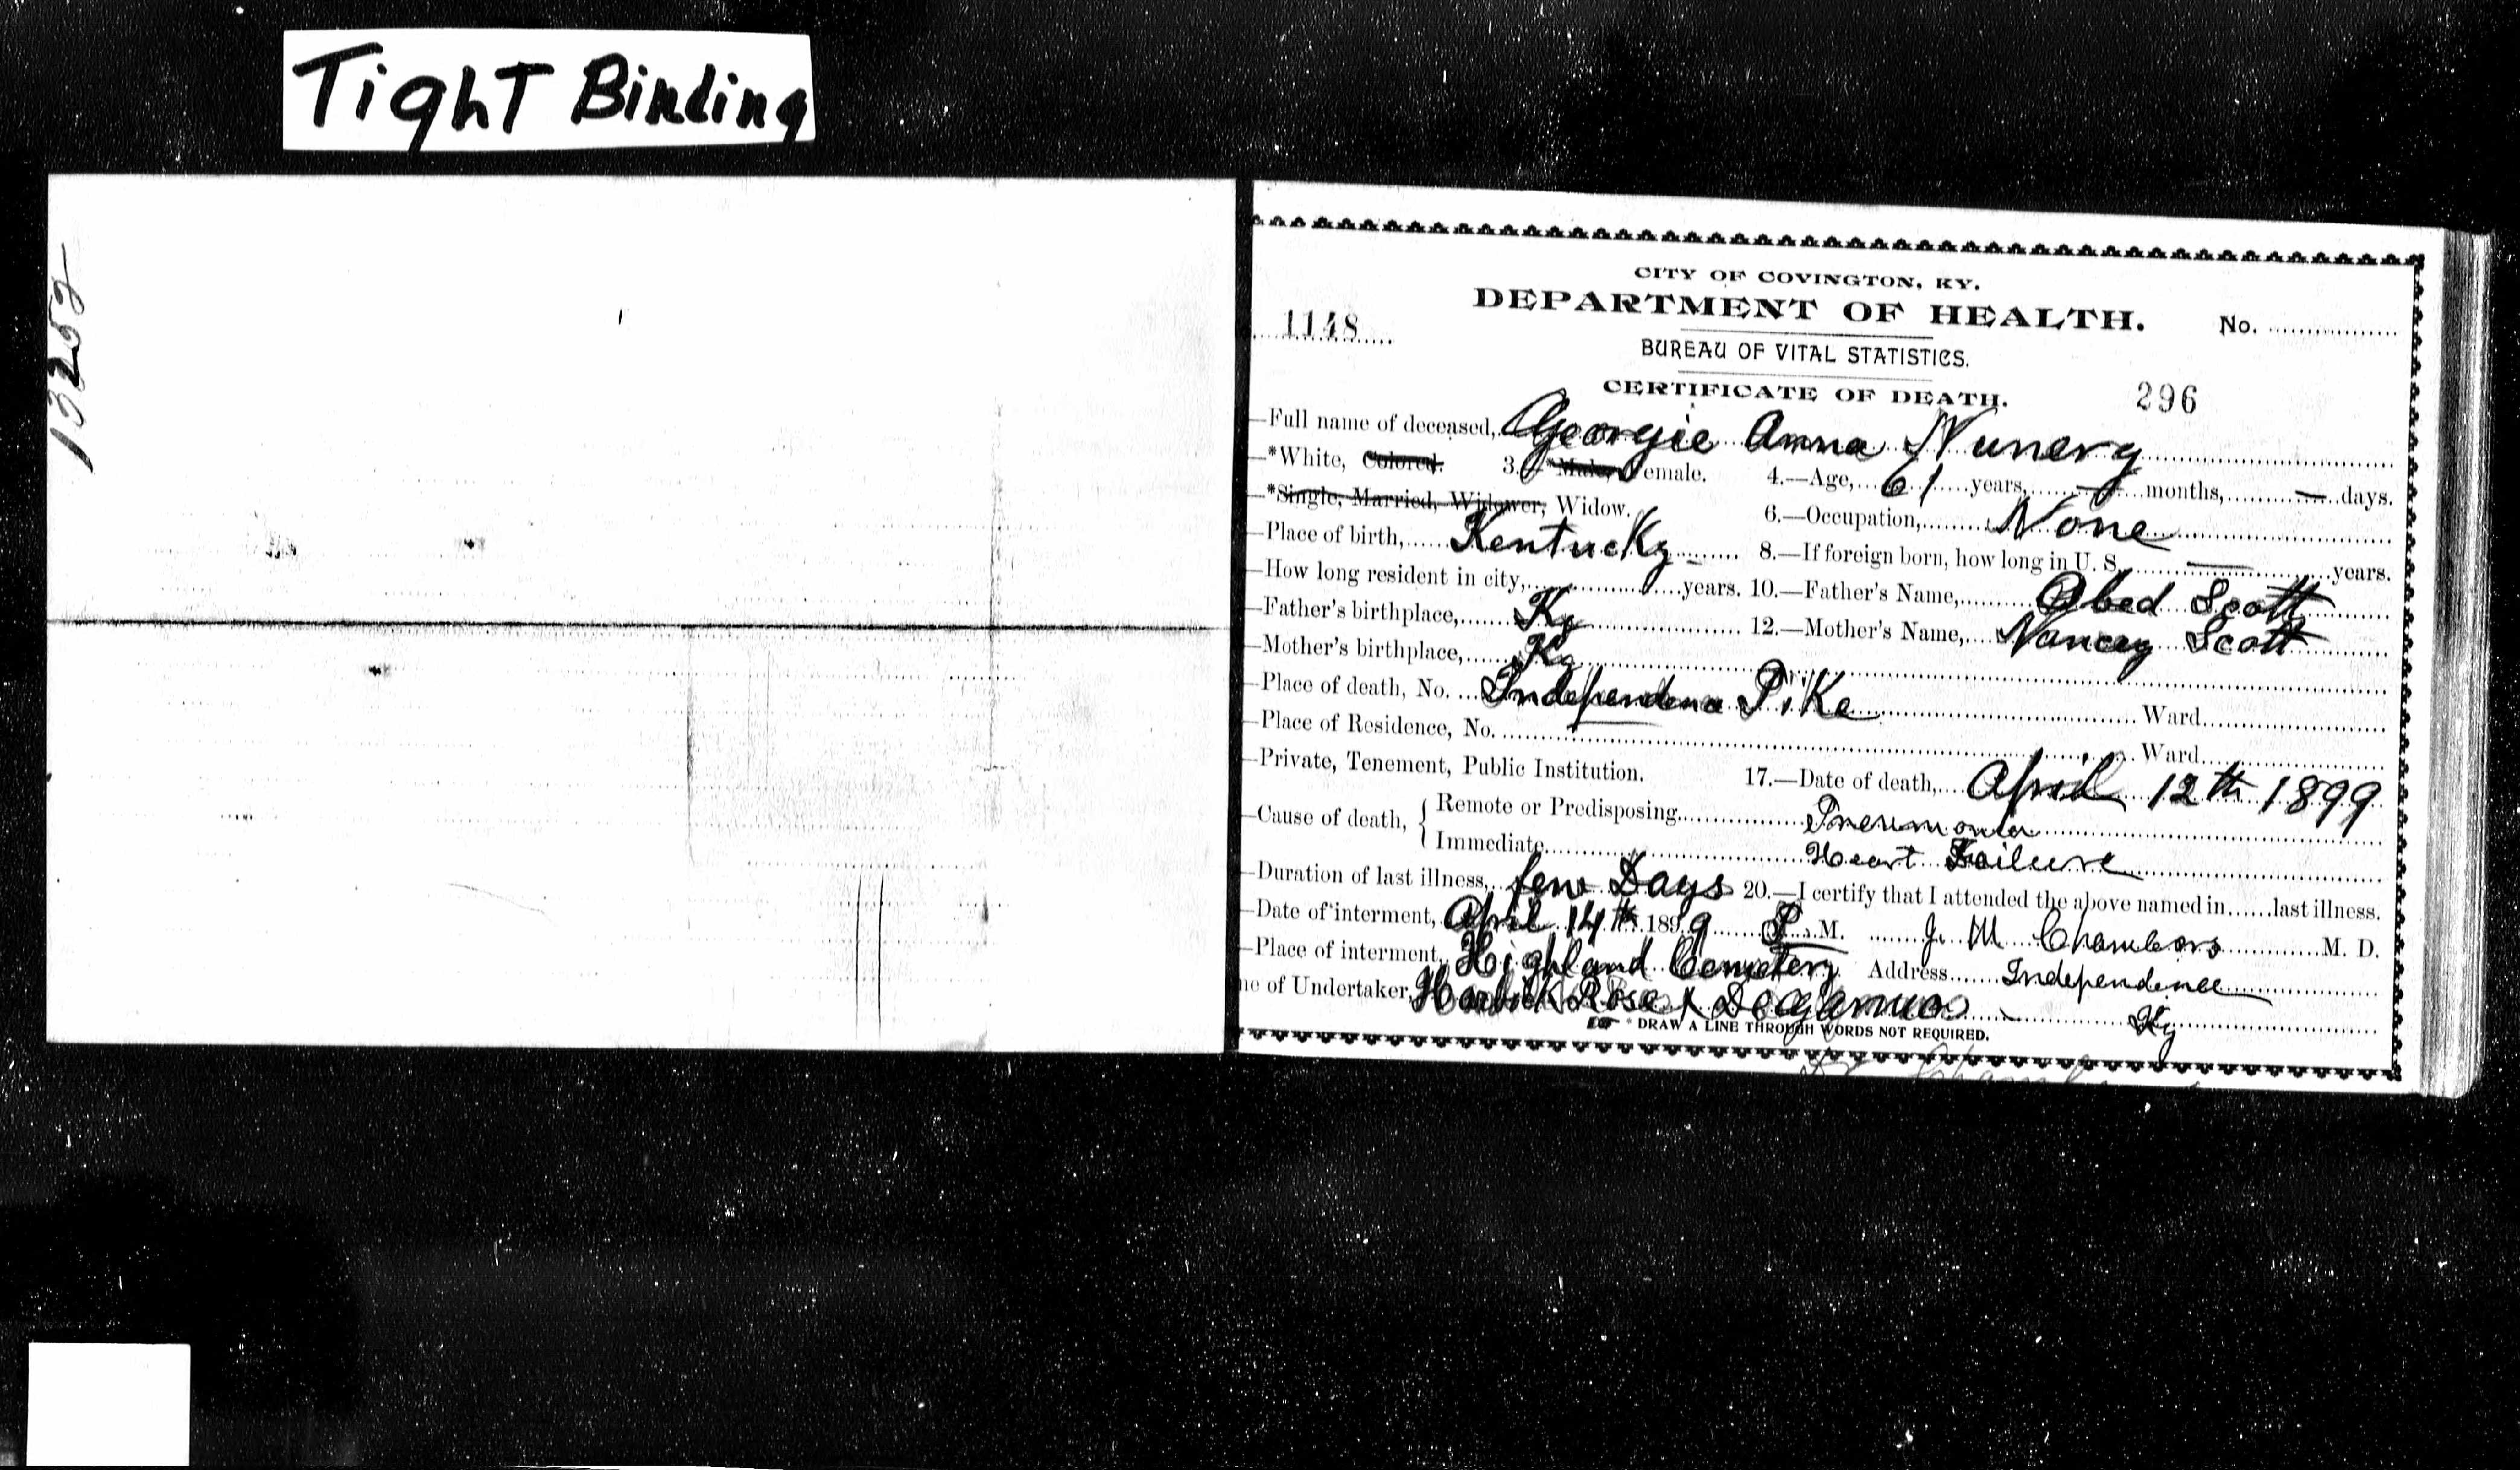 Tight Binding
13252
CITY OF COVINGTON, KY.
1148 DEPARTMENT OF HEALTH. No.
BUREAU OF VITAL STATISTICS.
CERTIFICATE OF DEATH. 296
—Full name of deceased, Georgie Anna Nunery
—*White, Colored. 3. *Male, Female. 4.—Age, 61 years, — months, — days.
—*Single, Married, Widower, Widow. 6.—Occupation, None
—Place of birth, Kentucky 8.—If foreign born, how long in U. S. — years.
—How long resident in city, years. 10.—Father's Name, Obed Scott
—Father's birthplace, Ky 12.—Mother's Name, Nancy Scott
—Mother's birthplace, Ky
—Place of death, No. Independence Pike Ward
—Place of Residence, No. Ward
—Private, Tenement, Public Institution. 17.—Date of death, April 12th 1899
—Cause of death, { Remote or Predisposing Pneumonia
Immediate Heart Failure
—Duration of last illness, few Days 20.—I certify that I attended the above named in last illness.
—Date of interment, April 14th 1899 P. M. J. M Chambers M. D.
—Place of interment, Highland Cemetery Address Independence
ne of Undertaker, Rose & Ky
* DRAW A LINE THROUGH WORDS NOT REQUIRED.